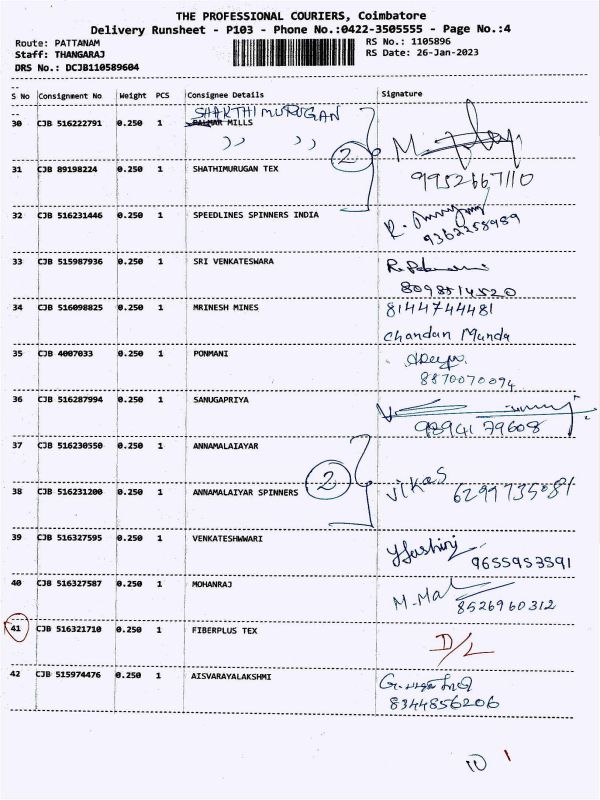 THE PROFESSIONAL COURIERS, Coimbatore
Delivery Runsheet - P103 - Phone No.:0422-3505555 - Page No.:4
Route: PATTANAM
Staff: THANGARAJ
DRS No.: DCJB110589604
RS No.: 1105896
RS Date: 26-Jan-2023
S No Consignment No Weight PCS Consignee Details Signature
SHAKTHIMURUGAN
30 CJB 516222791 0.250 1 PALMAR MILLS
2
31 CJB 89198224 0.250 1 SHATHIMURUGAN TEX 9952667110
32 CJB 516231446 0.250 1 SPEEDLINES SPINNERS INDIA 9362258989
33 CJB 515987936 0.250 1 SRI VENKATESWARA
8098514520
34 CJB 516098825 0.250 1 MRINESH MINES 8144744481
Chandan Munda
35 CJB 4007033 0.250 1 PONMANI
8870070094
36 CJB 516287994 0.250 1 SANUGAPRIYA
9894179608
37 CJB 516230550 0.250 1 ANNAMALAIAYAR
2
38 CJB 516231200 0.250 1 ANNAMALAIYAR SPINNERS Vikas 6299735081
39 CJB 516327595 0.250 1 VENKATESHWWARI
9655953591
40 CJB 516327587 0.250 1 MOHANRAJ
8526960312
41 CJB 516321710 0.250 1 FIBERPLUS TEX D/L
42 CJB 515974476 0.250 1 AISVARAYALAKSHMI
8344856206
10 1